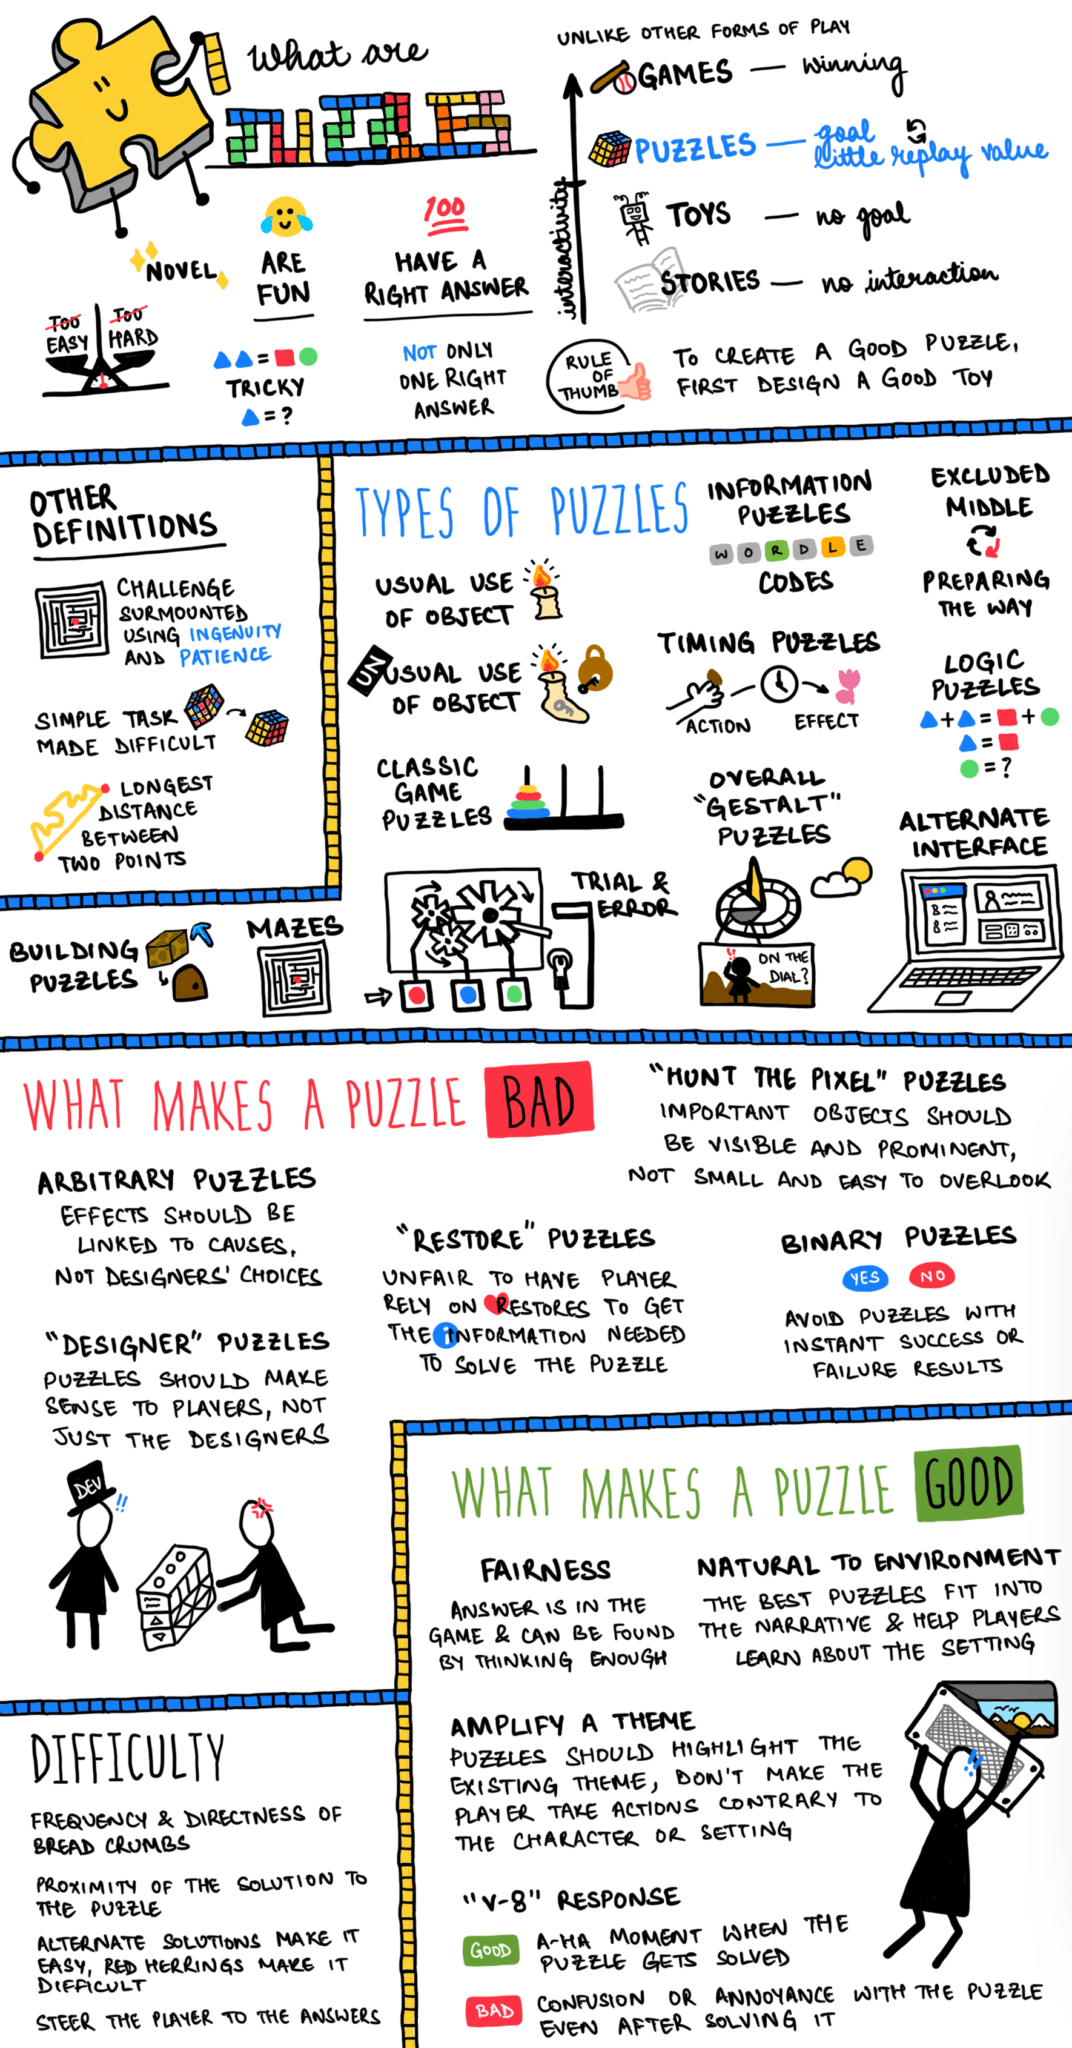 What are
PUZZLES
NOVEL
TOO EASY
TOO HARD
ARE
FUN
TRICKY
= ?
100
HAVE A
RIGHT ANSWER
NOT ONLY
ONE RIGHT
ANSWER
UNLIKE OTHER FORMS OF PLAY
interactivity
GAMES — winning
PUZZLES — goal
little replay value
TOYS — no goal
STORIES — no interaction
RULE
OF
THUMB
TO CREATE A GOOD PUZZLE,
FIRST DESIGN A GOOD TOY
OTHER
DEFINITIONS
CHALLENGE
SURMOUNTED
USING INGENUITY
AND PATIENCE
SIMPLE TASK
MADE DIFFICULT
LONGEST
DISTANCE
BETWEEN
TWO POINTS
TYPES OF PUZZLES
USUAL USE
OF OBJECT
UNUSUAL USE
OF OBJECT
CLASSIC
GAME
PUZZLES
INFORMATION
PUZZLES
WORDLE
CODES
TIMING PUZZLES
ACTION
EFFECT
EXCLUDED
MIDDLE
PREPARING
THE WAY
LOGIC
PUZZLES
+ = +
=
= ?
OVERALL
"GESTALT"
PUZZLES
!!
ON THE
DIAL?
ALTERNATE
INTERFACE
TRIAL &
ERROR
BUILDING
PUZZLES
MAZES
WHAT MAKES A PUZZLE BAD
"HUNT THE PIXEL" PUZZLES
IMPORTANT OBJECTS SHOULD
BE VISIBLE AND PROMINENT,
NOT SMALL AND EASY TO OVERLOOK
ARBITRARY PUZZLES
EFFECTS SHOULD BE
LINKED TO CAUSES,
NOT DESIGNERS' CHOICES
"RESTORE" PUZZLES
UNFAIR TO HAVE PLAYER
RELY ON RESTORES TO GET
THE INFORMATION NEEDED
TO SOLVE THE PUZZLE
BINARY PUZZLES
YES NO
AVOID PUZZLES WITH
INSTANT SUCCESS OR
FAILURE RESULTS
"DESIGNER" PUZZLES
PUZZLES SHOULD MAKE
SENSE TO PLAYERS, NOT
JUST THE DESIGNERS
DEV
!!
WHAT MAKES A PUZZLE GOOD
FAIRNESS
ANSWER IS IN THE
GAME & CAN BE FOUND
BY THINKING ENOUGH
NATURAL TO ENVIRONMENT
THE BEST PUZZLES FIT INTO
THE NARRATIVE & HELP PLAYERS
LEARN ABOUT THE SETTING
AMPLIFY A THEME
PUZZLES SHOULD HIGHLIGHT THE
EXISTING THEME, DON'T MAKE THE
PLAYER TAKE ACTIONS CONTRARY TO
THE CHARACTER OR SETTING
!!
"V-8" RESPONSE
GOOD
A-HA MOMENT WHEN THE
PUZZLE GETS SOLVED
BAD
CONFUSION OR ANNOYANCE WITH THE PUZZLE
EVEN AFTER SOLVING IT
DIFFICULTY
FREQUENCY & DIRECTNESS OF
BREAD CRUMBS
PROXIMITY OF THE SOLUTION TO
THE PUZZLE
ALTERNATE SOLUTIONS MAKE IT
EASY, RED HERRINGS MAKE IT
DIFFICULT
STEER THE PLAYER TO THE ANSWERS